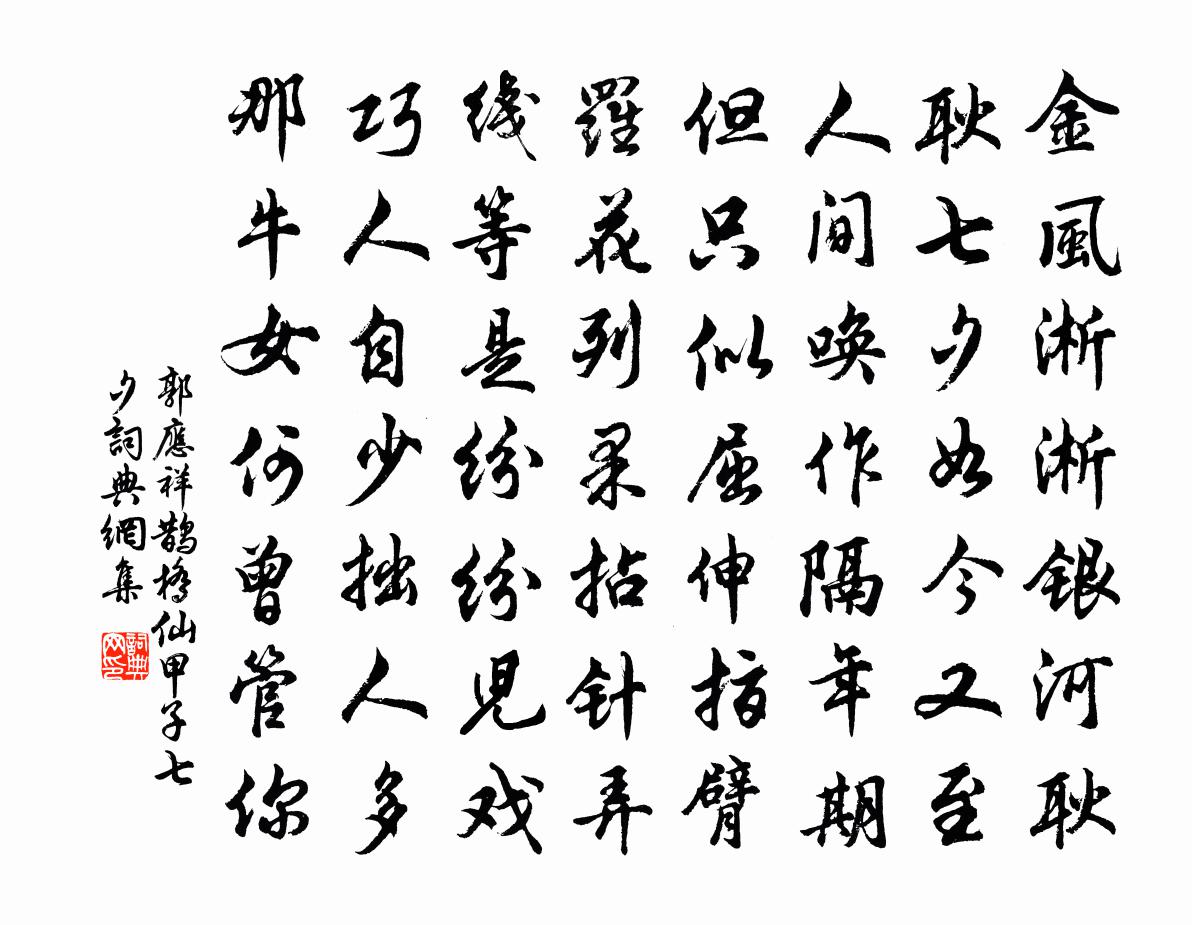 金風淅淅銀河耿
耿七夕如今又至
人間喚作隔年期
但只似屈伸指臂
羅花列果拈针弄
綫等是紛紛児戏
巧人自少拙人多
那牛女何曾管你
郭應祥鵲橋仙甲子七
夕詞典網集
詞典
网印